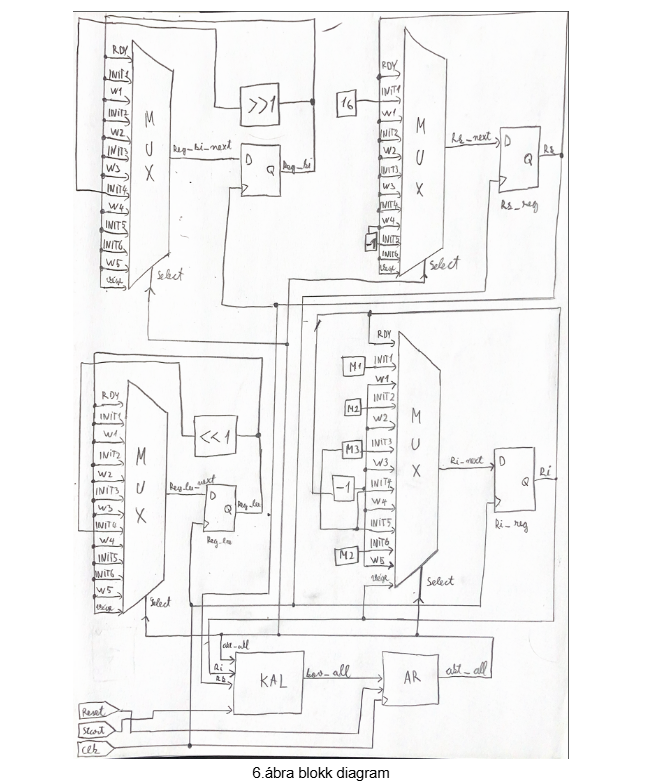 RDY
INIT1
W1
INIT2
W2
INIT3
W3
INIT4
W4
INIT5
INIT6
W5
vége
MUX
Select
>>1
Reg_bi_next
D
Q
Reg_bi
16
RDY
INIT1
W1
INIT2
W2
INIT3
W3
INIT4
W4
INIT5
INIT6
W5
vége
-1
MUX
Select
Rs_next
D
Q
Rs
Rs_reg
RDY
INIT1
W1
INIT2
W2
INIT3
W3
INIT4
W4
INIT5
INIT6
W5
vége
MUX
Select
<<1
D
Q
M1
M2
M3
-1
M2
RDY
INIT1
W1
INIT2
W2
INIT3
W3
INIT4
W4
INIT5
INIT6
W5
vége
MUX
Select
Ri_next
D
Q
Ri
Ri_reg
akt_all
Ri
Rs
KAL
kov_all
AR
akt_all
Reset
Start
Clk
6.ábra blokk diagram